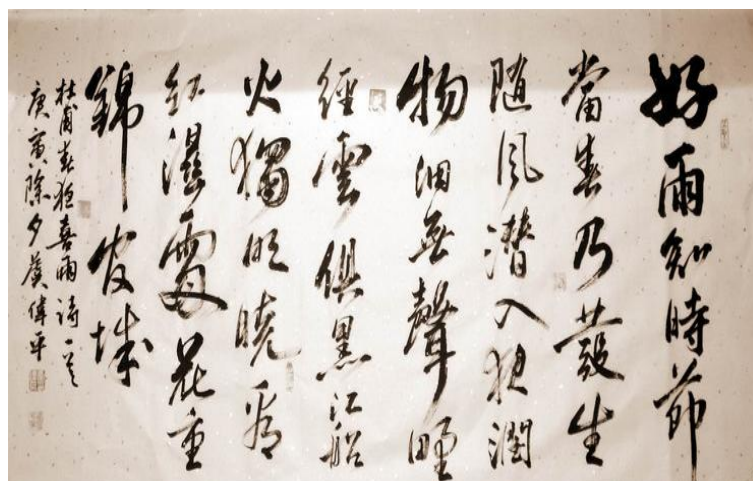 好雨知時節
當春乃發生
隨風潛入夜潤
物細無聲野
經雲俱黑江船
火獨明曉看
紅濕處花重
錦官城
杜甫春夜喜雨詩一首
庚寅除夕虞偉平